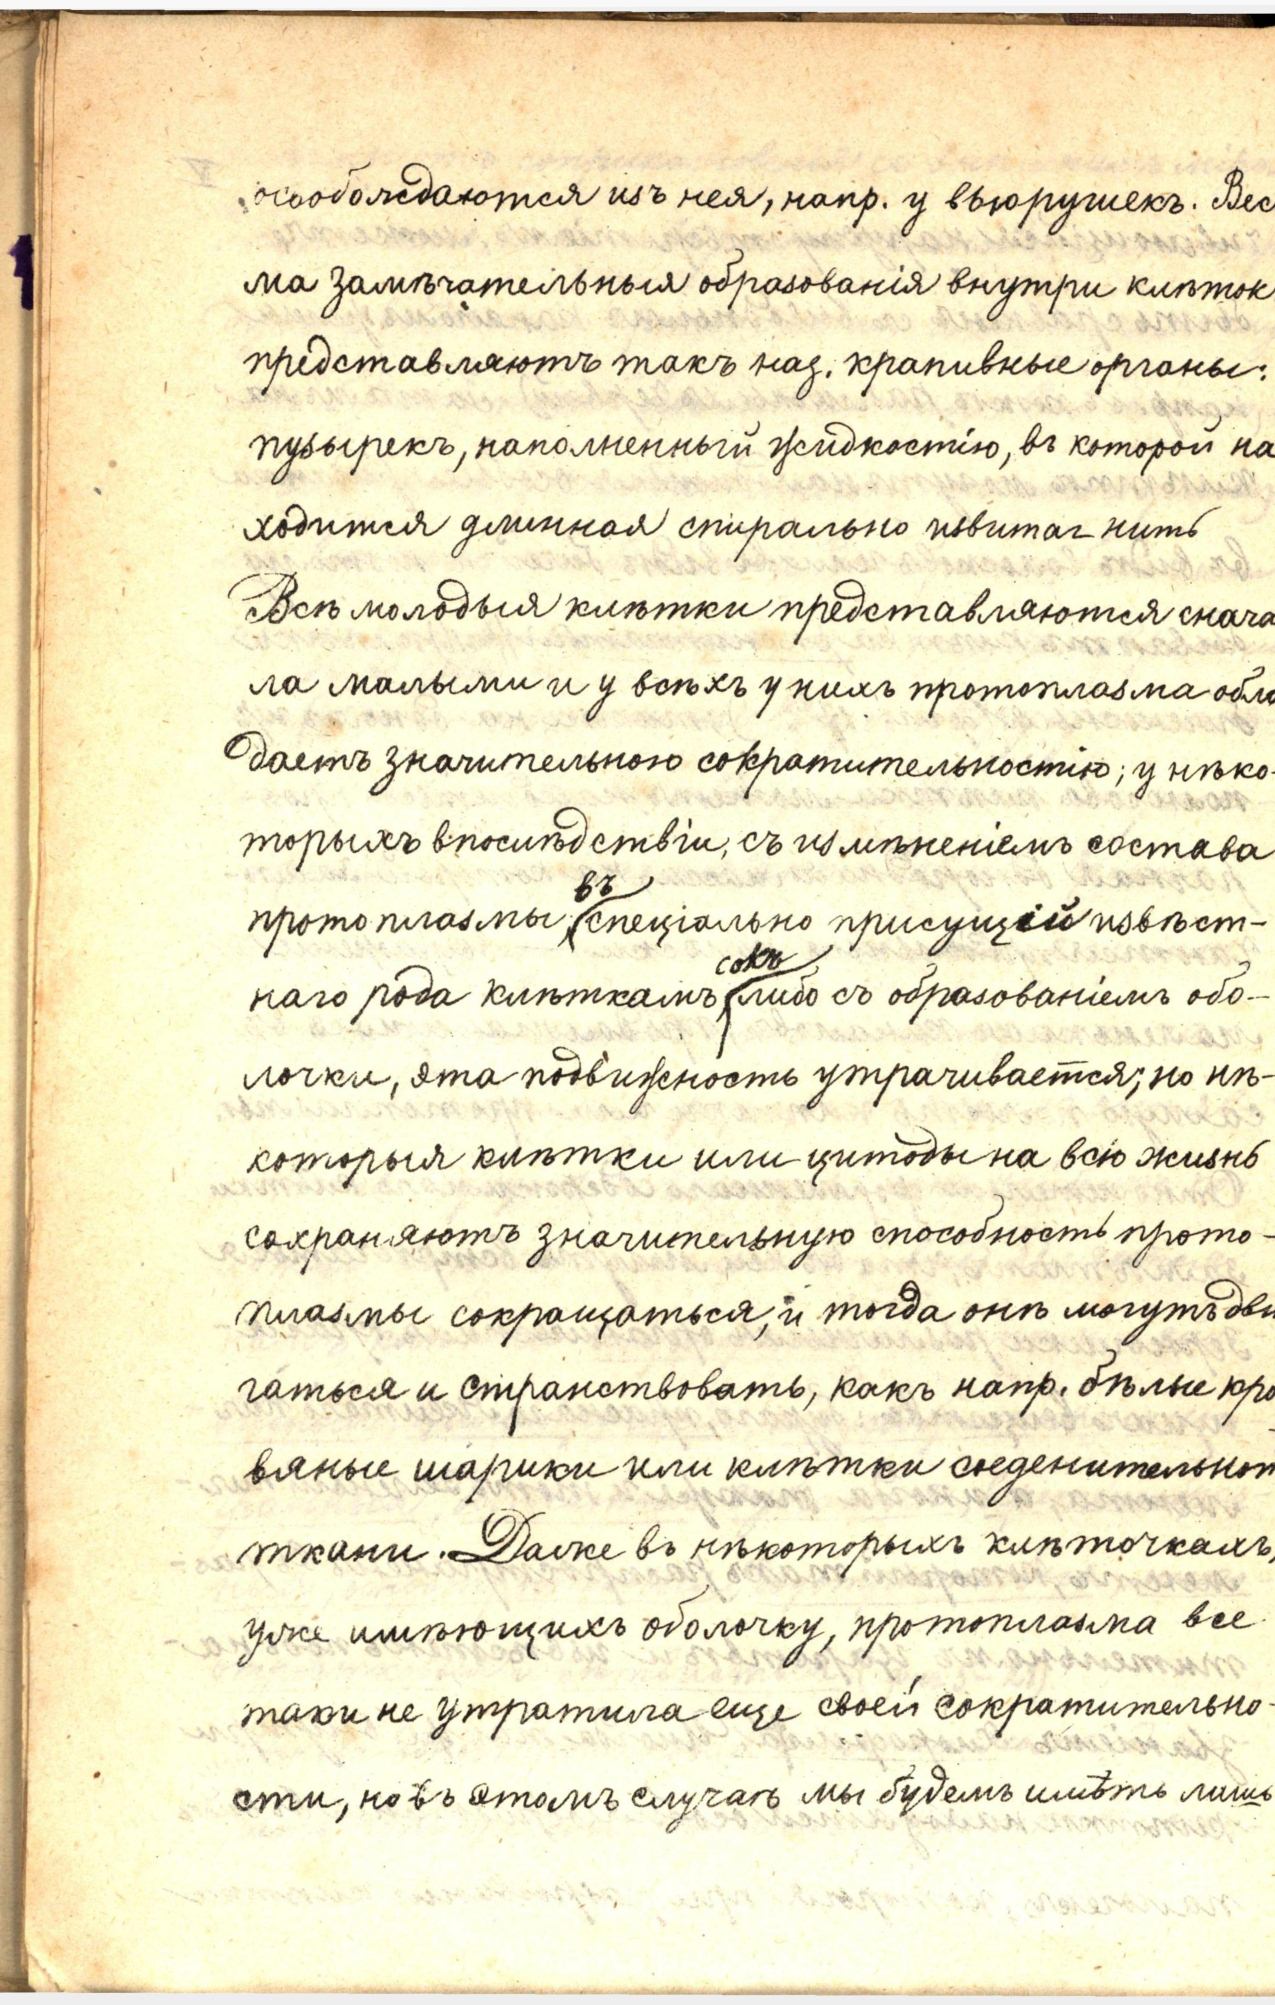 освобождаются изъ нея, напр. у вьюрушекъ. Вес
ма замѣчательныя образованія внутри клѣток
представляютъ такъ наз. крапивные органы:
пузырекъ, наполненный жидкостію, въ которой на
ходится длинная спирально извитая нить
Всѣ молодыя клѣтки представляются снача
ла малыми и у всѣхъ у нихъ протоплазма обла
даетъ значительною сократительностію; у нѣко-
торыхъ впослѣдствіи, съ измѣненіемъ состава
въ
протоплазмы спеціально присущій извѣст-
сокъ
наго рода клѣткамъ либо съ образованіемъ обо-
лочки, эта подвижность утрачивается; но нѣ-
которыя клѣтки или цитоды на всю жизнь
сохраняютъ значительную способность прото-
плазмы сокращаться, и тогда онѣ могутъ дви
гаться и странствовать, какъ напр. бѣлые кро
вяные шарики или клѣтки соеденительной
ткани. Далѣе въ нѣкоторыхъ клѣточкахъ,
уже имѣющихъ оболочку, протоплазма все
таки не утратила еще своей сократительно-
сти, но въ этомъ случаѣ мы будемъ имѣть лишь